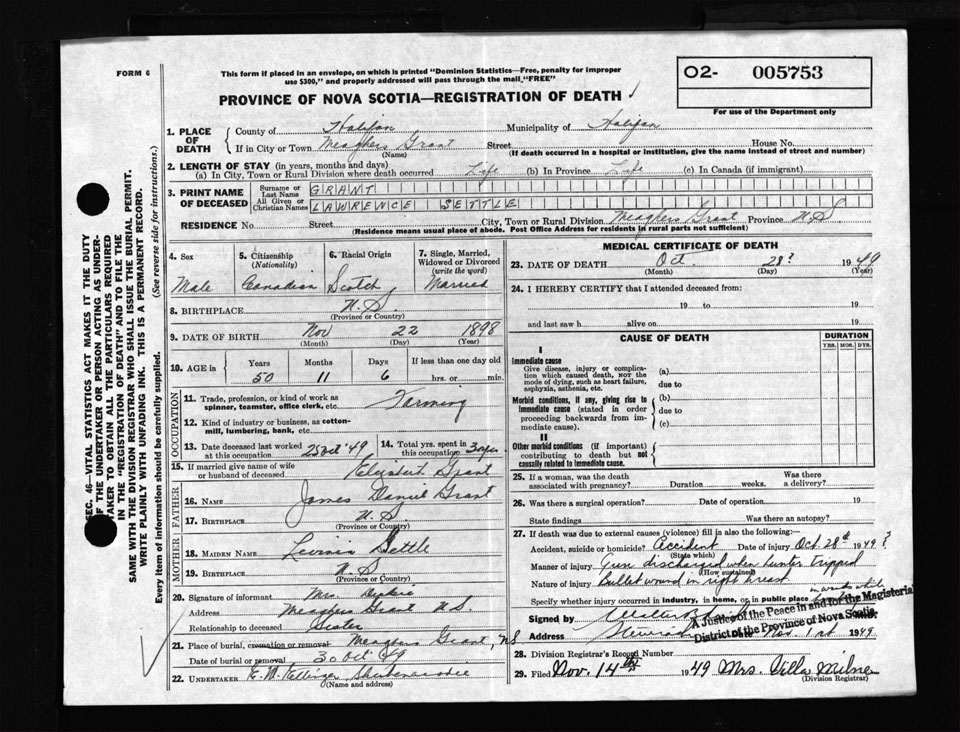 FORM 6
This form if placed in an envelope, on which is printed "Dominion Statistics—Free, penalty for improper
use $300," and properly addressed will pass through the mail "FREE"
PROVINCE OF NOVA SCOTIA—REGISTRATION OF DEATH
02- 005753
For use of the Department only
1. PLACE OF DEATH County of Halifax Municipality of Halifax
If in City or Town Meaghers Grant Street House No.
(Name) (If death occurred in a hospital or institution, give the name instead of street and number)
2. LENGTH OF STAY (in years, months and days)
(a) In City, Town or Rural Division where death occurred Life (b) In Province Life (c) In Canada (if immigrant)
3. PRINT NAME OF DECEASED Surname or Last Name GRANT
All Given or Christian Names LAWRENCE SETTLE
RESIDENCE No. Street City, Town or Rural Division Meaghers Grant Province N.S.
(Residence means usual place of abode. Post Office Address for residents in rural parts not sufficient)
4. Sex Male
5. Citizenship (Nationality) Canadian
6. Racial Origin Scotch
7. Single, Married, Widowed or Divorced (write the word) Married
8. BIRTHPLACE N.S.
(Province or Country)
9. DATE OF BIRTH Nov 22 1898
(Month) (Day) (Year)
10. AGE in Years Months Days If less than one day old
50 11 6 hrs. or min.
OCCUPATION
11. Trade, profession, or kind of work as
spinner, teamster, office clerk, etc. Farming
12. Kind of industry or business, as cotton-
mill, lumbering, bank, etc.
13. Date deceased last worked at this occupation 25 Oct '49 14. Total yrs. spent in this occupation 30 yrs
15. If married give name of wife
or husband of deceased Elizabeth Grant
FATHER
16. Name James Daniel Grant
17. Birthplace N.S
(Province or Country)
MOTHER
18. Maiden Name Settle
19. Birthplace N.S
(Province or Country)
20. Signature of informant Mrs.
Address Meaghers Grant N.S.
Relationship to deceased Sister
21. Place of burial, cremation or removal Meaghers Grant, NS
Date of burial or removal 30 Oct 49
22. UNDERTAKER E. W. Ettinger Shubenacadie
(Name and Address)
MEDICAL CERTIFICATE OF DEATH
23. DATE OF DEATH Oct. 28? 1949
(Month) (Day) (Year)
24. I HEREBY CERTIFY that I attended deceased from:
19 to 19
and last saw h alive on 19
CAUSE OF DEATH DURATION
YRS. MOS. DYS.
I
Immediate cause
Give disease, injury or complica-
tion which caused death, NOT the
mode of dying, such as heart failure,
asphyxia, asthenia, etc.
(a)
due to
Morbid conditions, if any, giving rise to
immediate cause (stated in order
proceeding backwards from im-
mediate cause).
(b)
due to
(c)
II
Other morbid conditions (if important)
contributing to death but not
causally related to immediate cause.
25. If a woman, was the death Was there
associated with pregnancy? Duration weeks. a delivery?
26. Was there a surgical operation? Date of operation 19
State findings Was there an autopsy?
27. If death was due to external causes (violence) fill in also the following:
Accident, suicide or homicide? Accident Date of injury Oct. 28th 1949?
(State which)
Manner of injury Gun discharged when hunter tripped
(How sustained)
Nature of injury Bullet wound in right breast
Specify whether injury occurred in industry, in home, or in public place in woods while
Signed by
A Justice of the Peace in and for the Magisterial
District of the Province of Nova Scotia.
Address Stewiacke Nov. 1st 1949
28. Division Registrar's Record Number
29. Filed Nov. 14th 1949 Mrs. Villa Milner
(Division Registrar)
SEC. 46—VITAL STATISTICS ACT MAKES IT THE DUTY
OF THE UNDERTAKER OR PERSON ACTING AS UNDER-
TAKER TO OBTAIN ALL THE PARTICULARS REQUIRED
IN THE "REGISTRATION OF DEATH" AND TO FILE THE
SAME WITH THE DIVISION REGISTRAR WHO SHALL ISSUE THE BURIAL PERMIT.
WRITE PLAINLY WITH UNFADING INK. THIS IS A PERMANENT RECORD.
Every item of information should be carefully supplied. (See reverse side for instructions.)